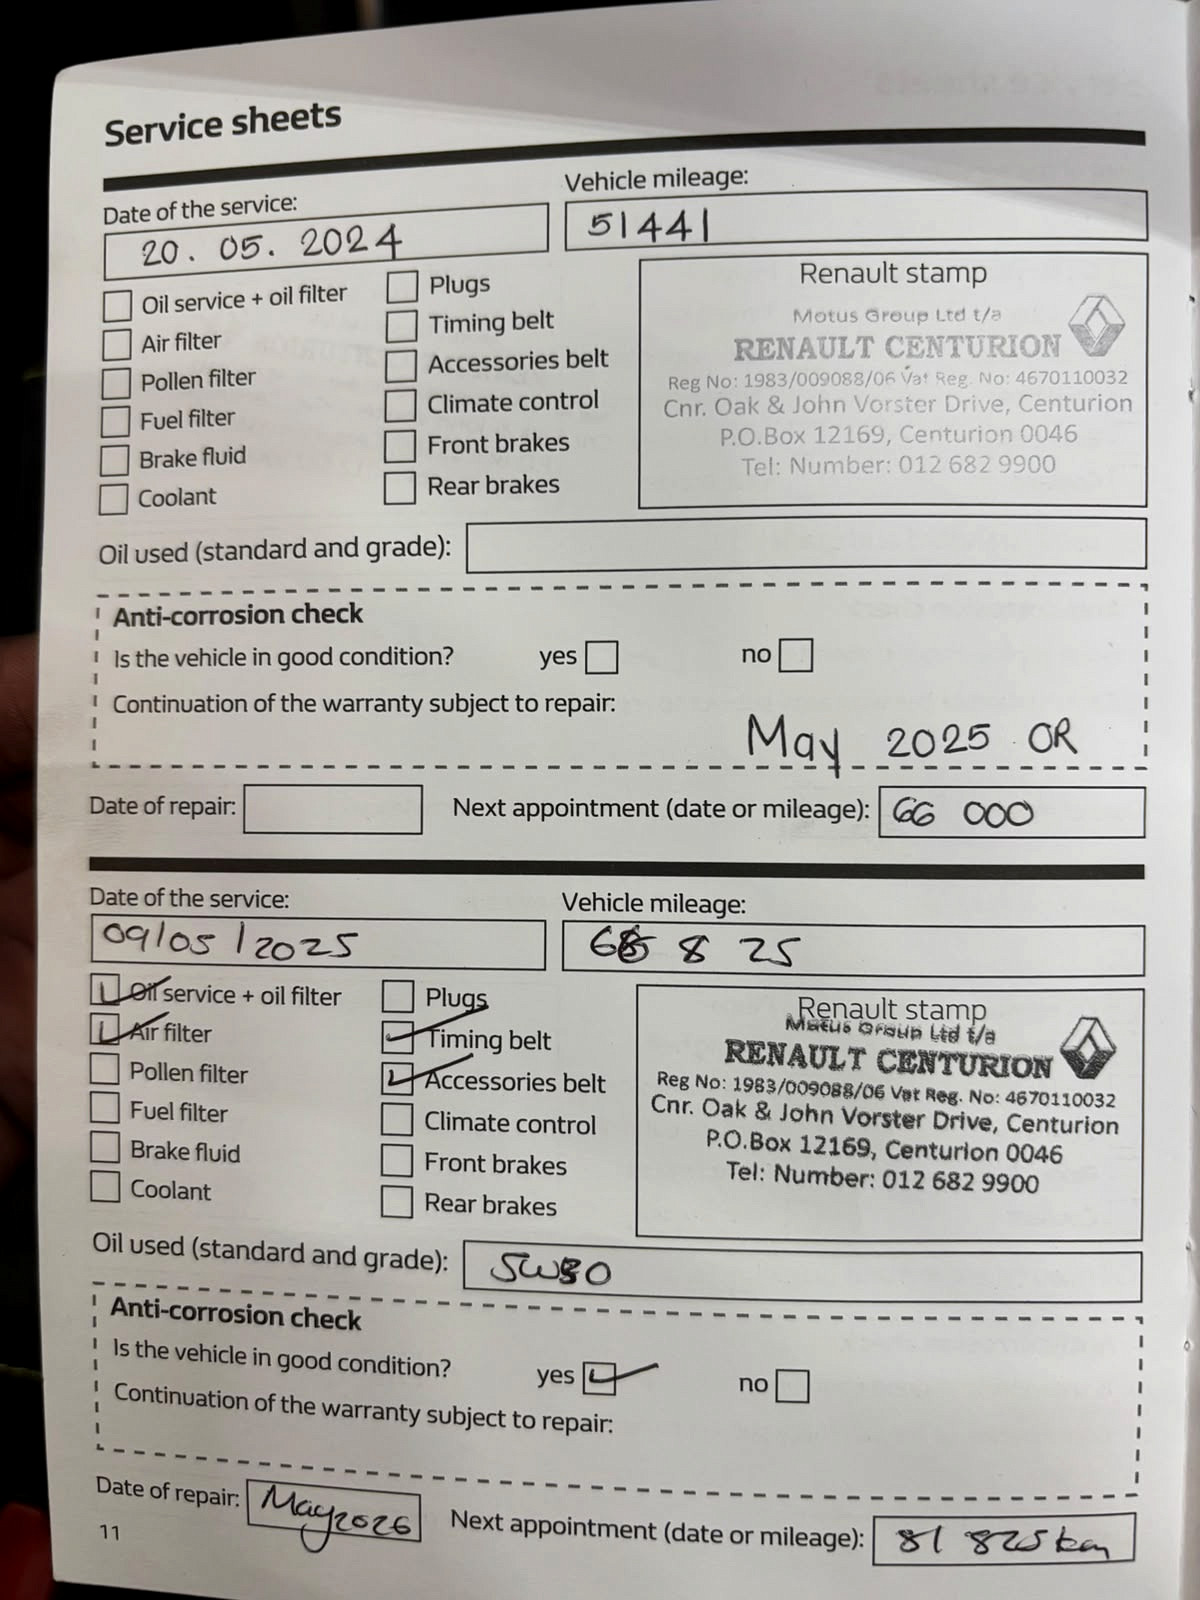 Service sheets
Date of the service: Vehicle mileage:
20. 05. 2024 51441
Oil service + oil filter
Air filter
Pollen filter
Fuel filter
Brake fluid
Coolant
Plugs
Timing belt
Accessories belt
Climate control
Front brakes
Rear brakes
Renault stamp
Motus Group Ltd t/a
RENAULT CENTURION
Reg No: 1983/009088/06 Vat Reg. No: 4670110032
Cnr. Oak & John Vorster Drive, Centurion
P.O.Box 12169, Centurion 0046
Tel: Number: 012 682 9900
Oil used (standard and grade):
Anti-corrosion check
Is the vehicle in good condition? yes no
Continuation of the warranty subject to repair:
May 2025 OR
Date of repair: Next appointment (date or mileage): 66 000
Date of the service: Vehicle mileage:
09/05/2025 8 25
Oil service + oil filter
Air filter
Pollen filter
Fuel filter
Brake fluid
Coolant
Plugs
Timing belt
Accessories belt
Climate control
Front brakes
Rear brakes
Renault stamp
Motus Group Ltd t/a
RENAULT CENTURION
Reg No: 1983/009088/06 Vat Reg. No: 4670110032
Cnr. Oak & John Vorster Drive, Centurion
P.O.Box 12169, Centurion 0046
Tel: Number: 012 682 9900
Oil used (standard and grade): 5W30
Anti-corrosion check
Is the vehicle in good condition? yes no
Continuation of the warranty subject to repair:
Date of repair: May 2026 Next appointment (date or mileage): 81 825 km
11